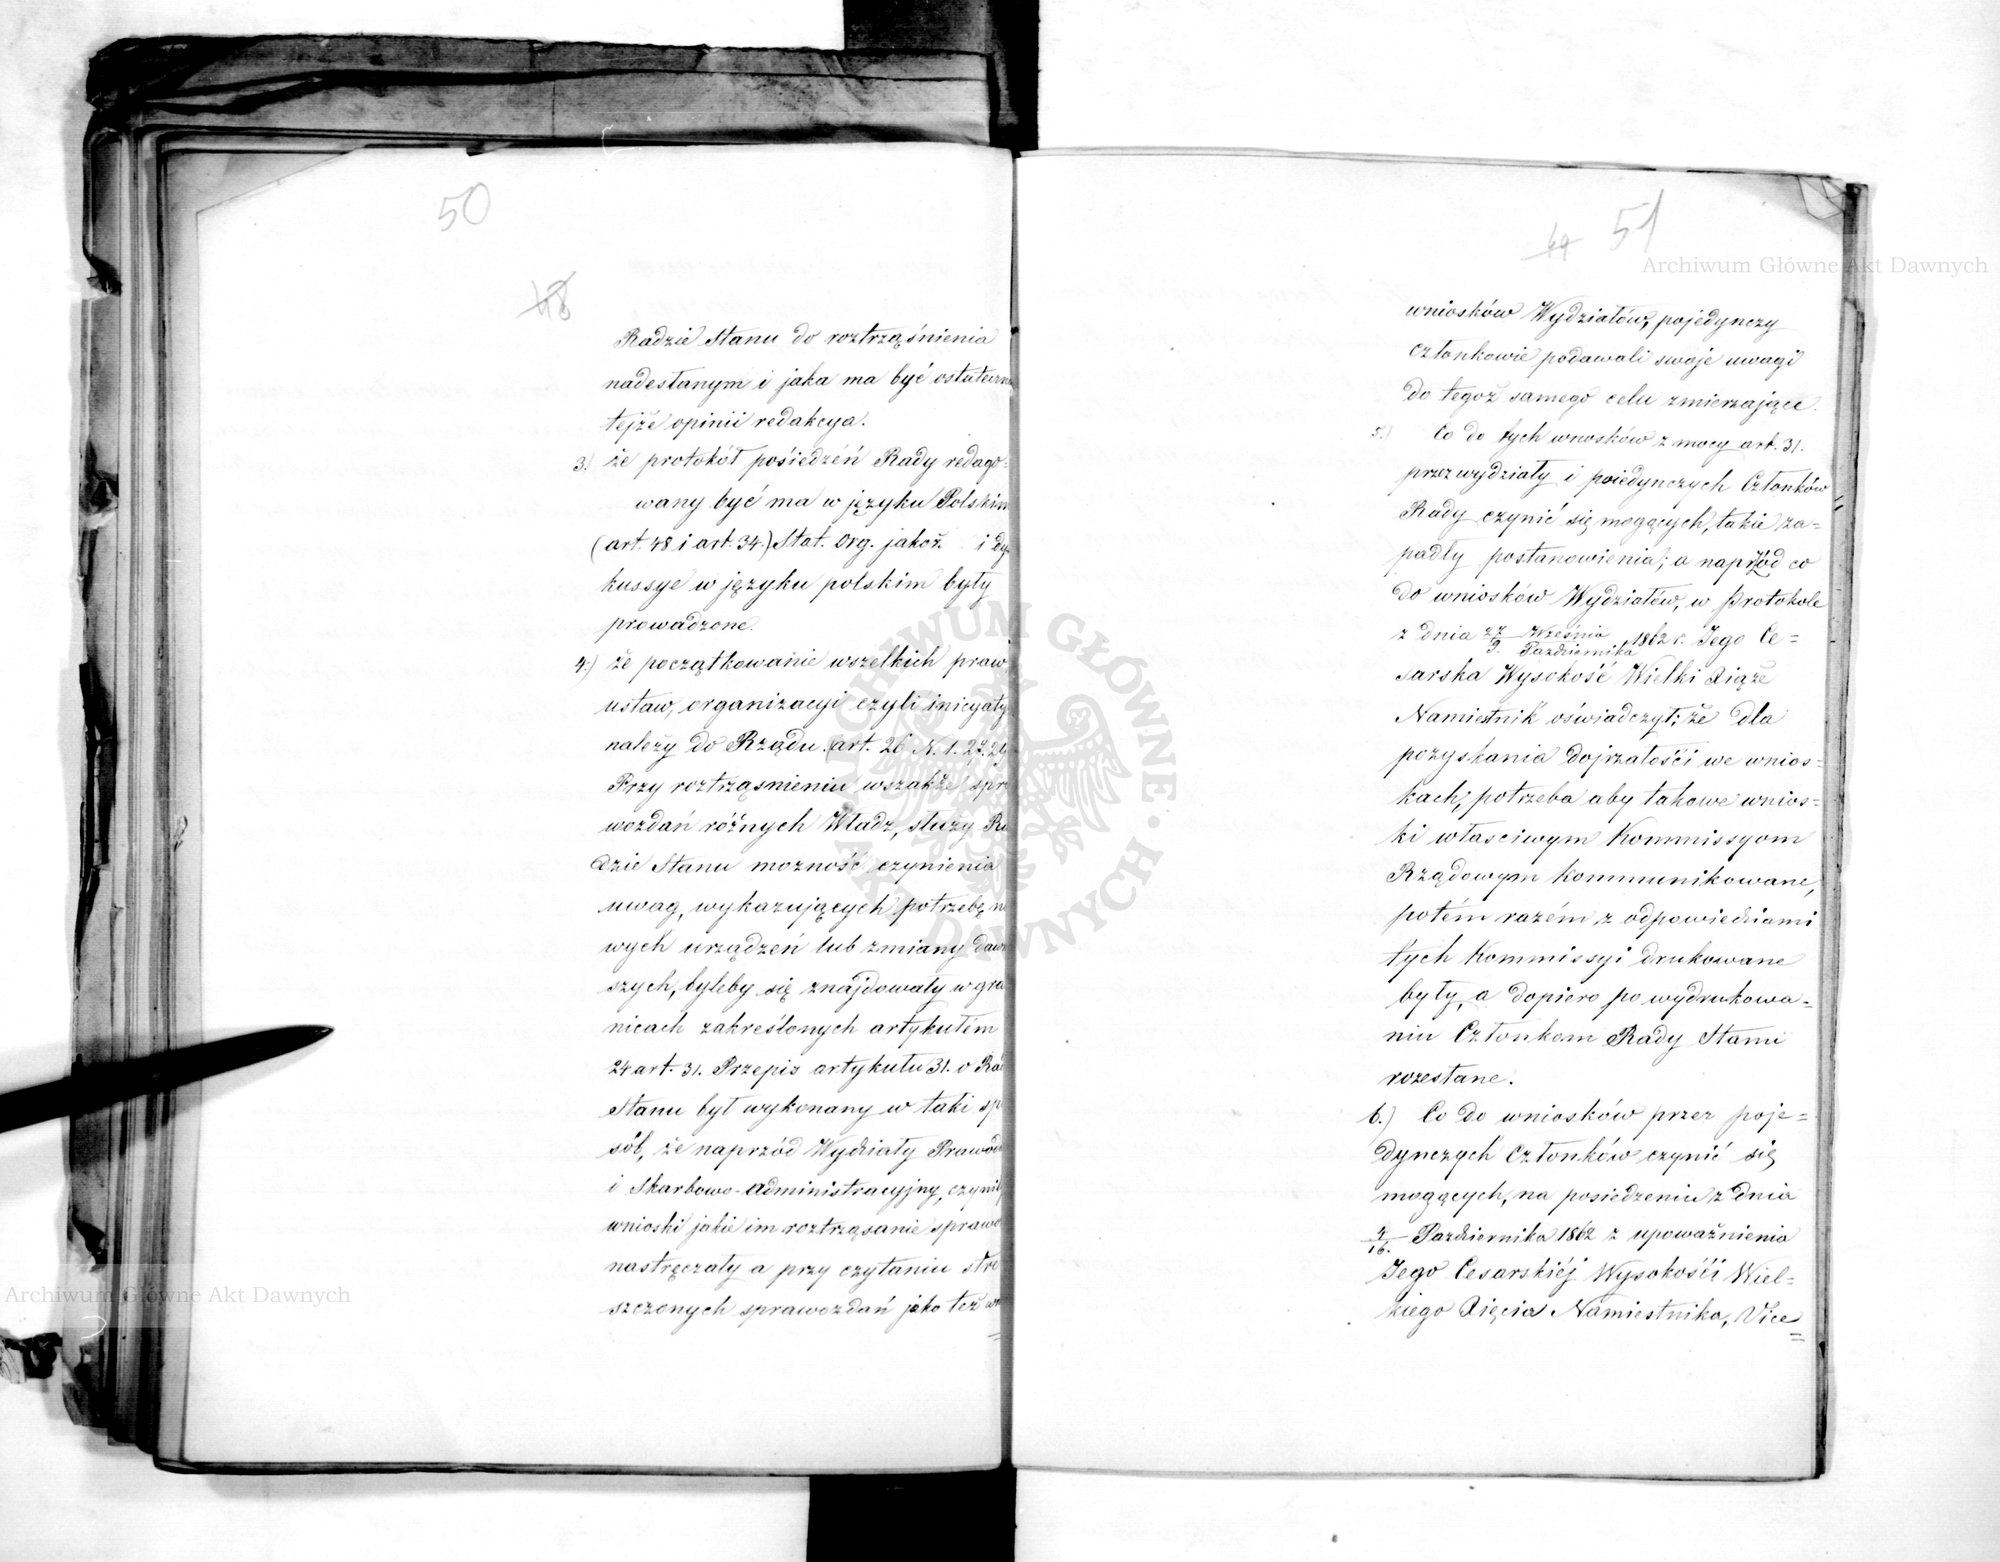 50
48
Radzie Stanu do roztrząśnienia
nadesłanym i jaka ma być ostateczn
tejże opinii redakcya.
3.) że protokół posiedzéń Rady redago=
wany być ma w języku Polskim
(art. 48 i art. 34.) Stat. Org. jakoż i dy
kussye w języku polskim były
prowadzone.
4.) że początkowanie wszelkich praw
ustaw, organizacyi czyli inicyaty
należy do Rządu. (art. 26 N. 1. 27. 29
Przy roztrząsnieniu wszakże spr
wozdań różnych Władz, służy Ra
dzie Stanu możność czynienia
uwag, wykazujących potrzebę no
wych urządzeń lub zmiany daw
szych, byleby się znajdowały w gra
nicach zakreślonych artykułem
24 art. 31. Przepis artykułu 31. o Rad
Stanu był wykonany w taki sp
sób, że naprzód Wydziały Prawod
i Skarbowo-Administracyjny, czynił
wnioski jakie im roztrząsanie sprawo
nastręczały a przy czytaniu stre
szczonych sprawozdań jako też
49 51
wniosków Wydziałów, pojedynczy
członkowie podawali swoje uwagi
do tegoż samego celu zmierzające.
5.) Co do tych wnosków z mocy art. 31.
przez wydziały i poiedynczych Członków
Rady czynić się mogących, takie za=
padły postanowienia; a naprzód co
do wniosków Wydziałów, w Protokole
z dnia 27 Września / 9. Października 1862 r. Jego Ce=
sarska Wysokość Wielki Xiąże
Namiestnik oświadczył; że dla
pozyskania dojrzałości we wnios=
kach, potrzeba aby takowe wnios=
ki właściwym Kommissyom
Rządowym kommunikowane,
potém razém z odpowiedziami
tych Kommissyi drukowane
były, a dopiero po wydrukowa=
niu Członkom Rady Stanu
rozesłane.
6.) Co do wniosków przez poje=
dynczych Członków czynić się
mogących, na posiedzeniu z dnia
4/16. Października 1862 z upoważnienia
Jego Cesarskiéj Wysokości Wiel=
kiego Xięcia Namiestnika, Vice
Archiwum Główne Akt Dawnych
Archiwum Główne Akt Dawnych
ARCHIWUM GŁÓWNE AKT DAWNYCH